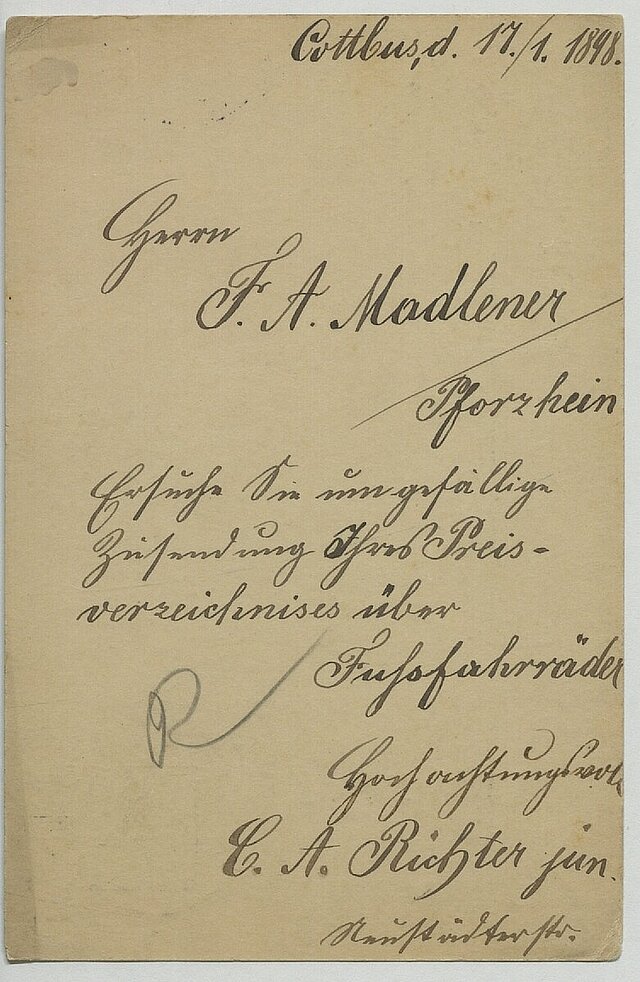 Cottbus, d. 17./1. 1898.
Herrn
F. A. Madlener
Pforzhein
Ersuche Sie um gefällige
Zusendung Ihres Preis-
verzeichnises über
Fuhsfahrräder
Hochachtungsvoll
C. A. Richter jun.
Neustädterstr.
R